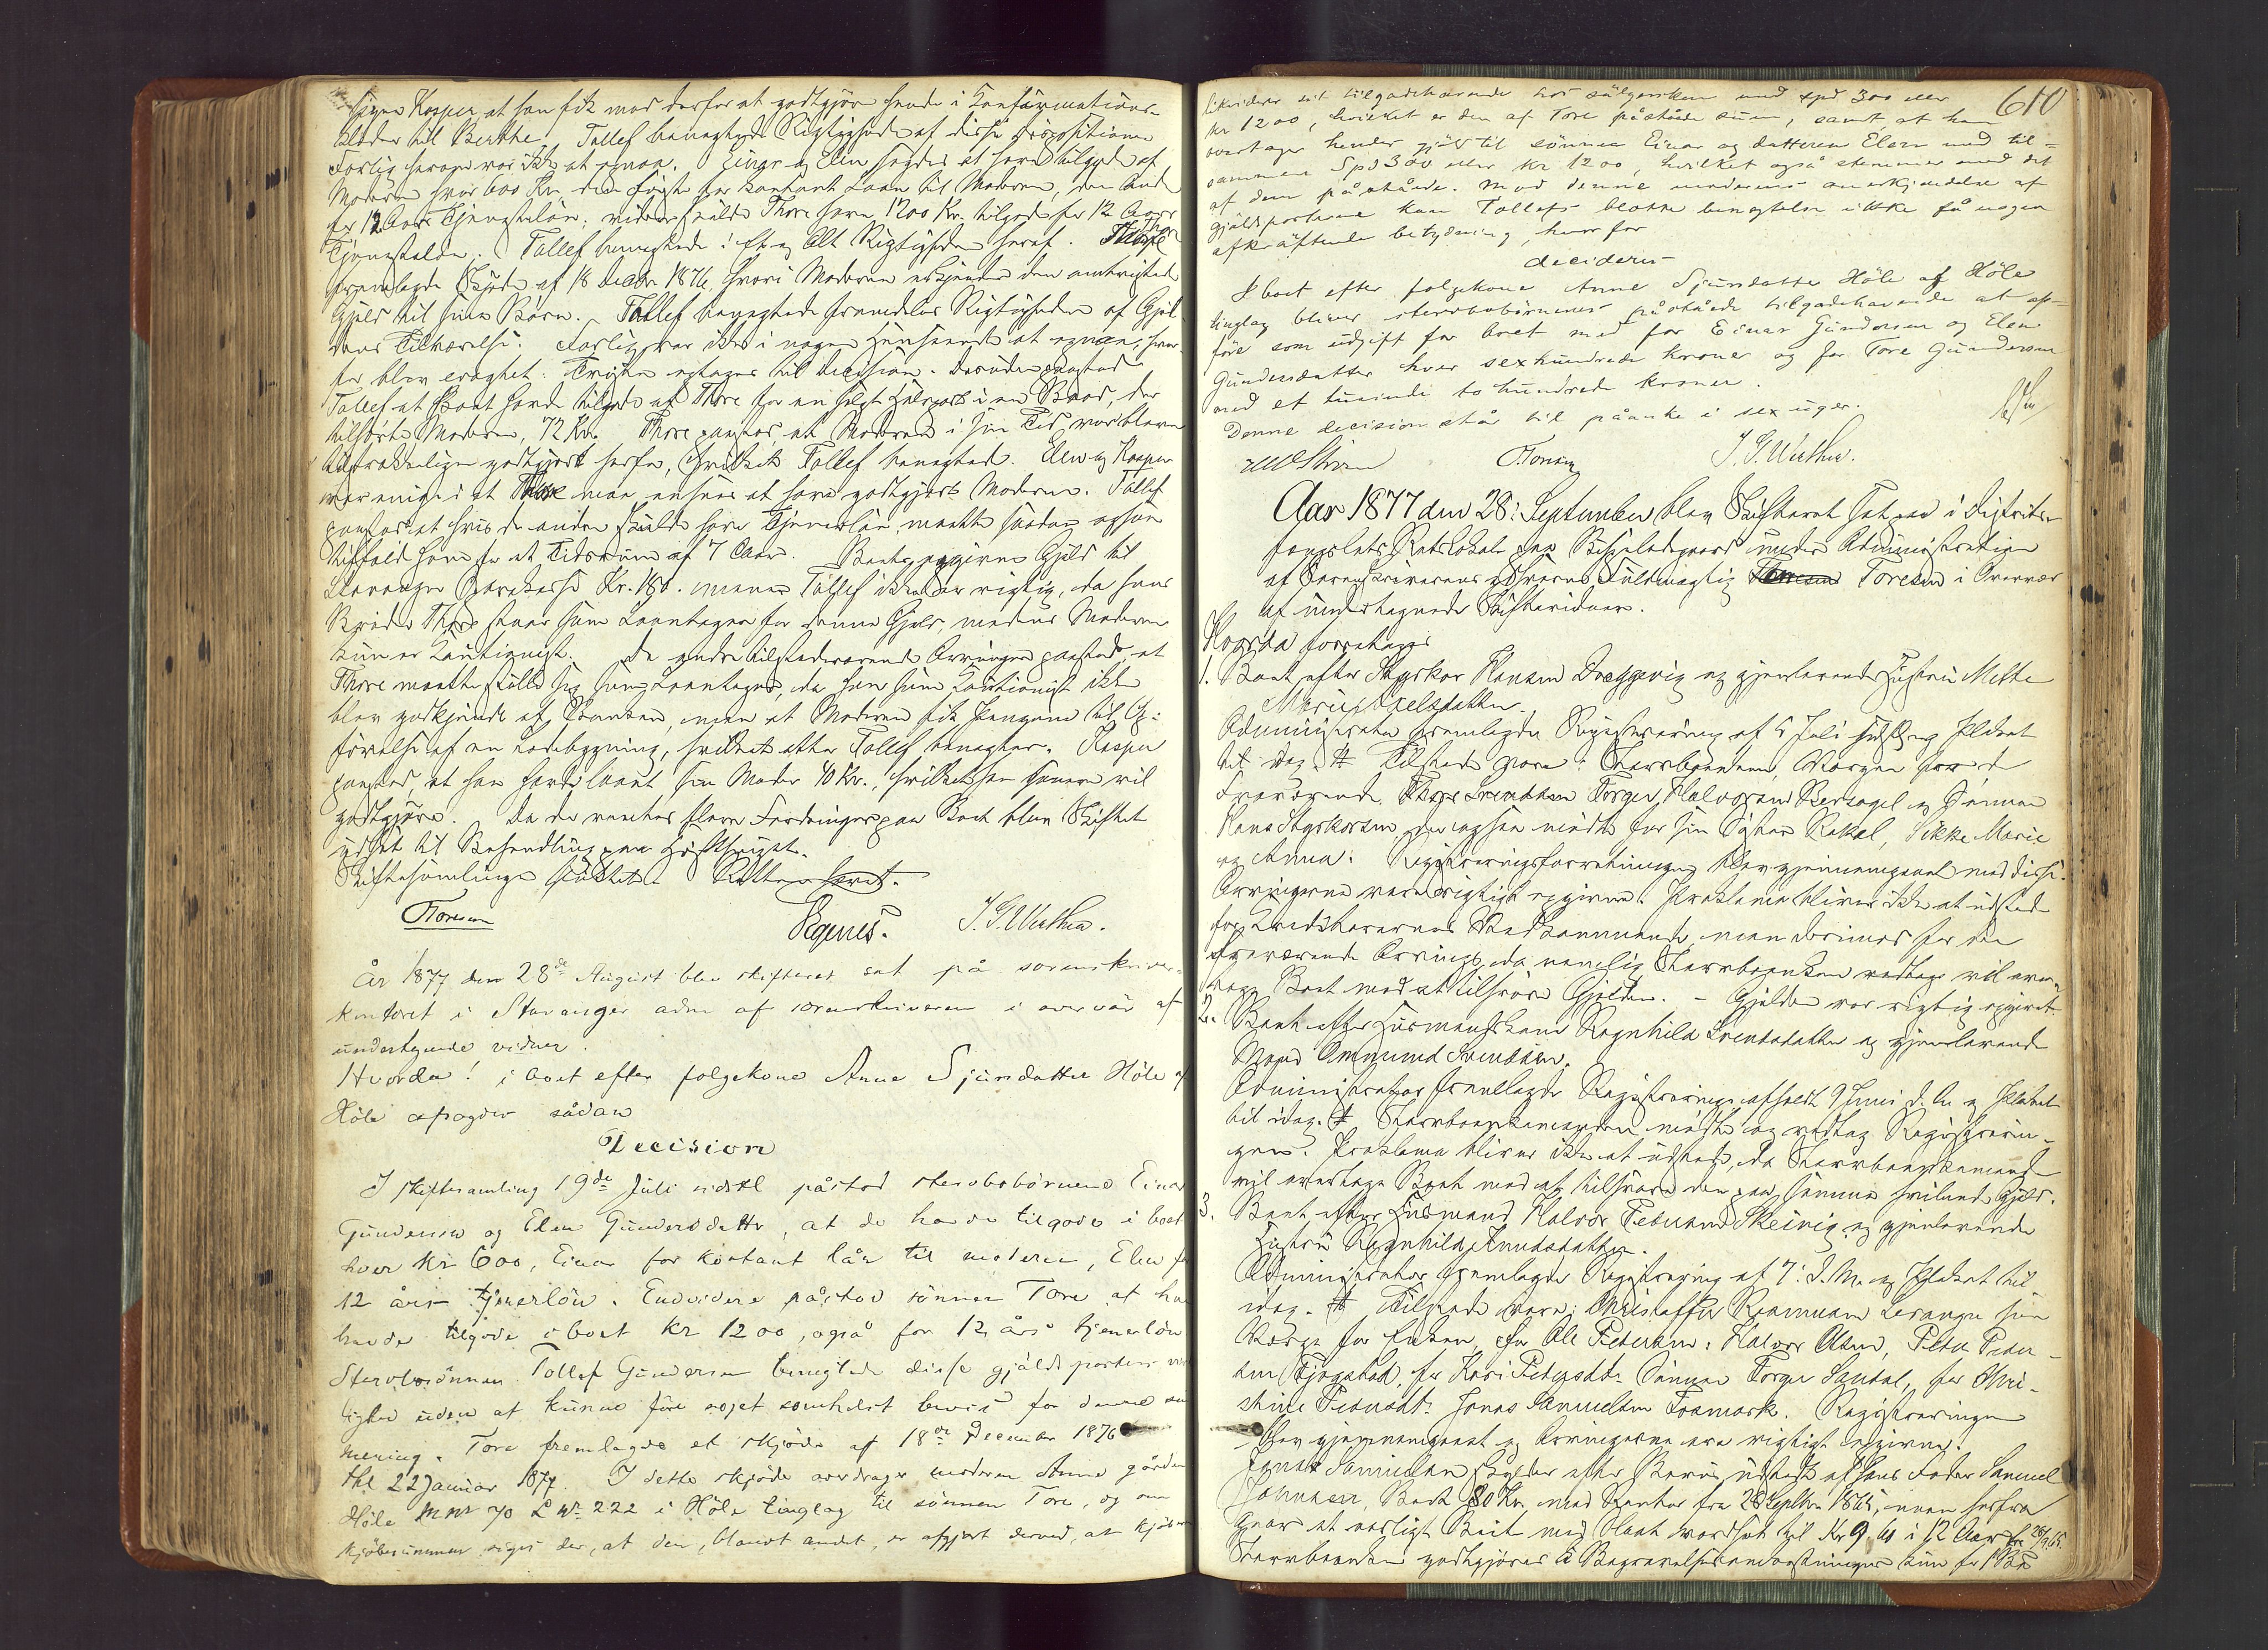 Kasper at han fik mod derfor at godtgjøre hende i Konfirmations-
klæder til Berthe. Tollef benægtede Rigtigheden af disse Propositioner
Forlig herom var ikke at opnaa. Einar og Elen sagdes at have tilgode af
Moderen hver 600 Kr. den første for kontant Laan til Moderen, den anden
for 12 Aars Tjenesteløn; videre skulde Thore have 1200 Kr. tilgode for 12 Aars
Tjenesteløn. Tollef benægtede i Et og Alt Rigtigheden heraf. Thore
fremlagde Skjøde af 18 Decbr 1876, hvori Moderen erkjender den omtvistede
Gjæld til sine Børn. Tollef benægtede fremdeles Rigtigheden af Gjæl-
dens Tilværelse. Forlig var ikke i nogen Henseende at opnaa, hvor-
for blev eragtet: Tvisten optages til Decision. Desuden paastod
Tollef at Boet havde tilgode af Thore for en solgt Halvpart i en Baad, der
tilhørte Moderen, 72 Kr. Thore paastod, at Moderen i sin Tid var bleven
tilstrækkeligen godtgjort herfor, hvilket Tollef benægted. Elen og Kasper
var enige i at Thore maa ansees at have godtgjort Moderen. Tollef
paastod at hvis de andre skulde have Tjenerløn, maatte saadan ogsaa
tilfalde ham for et Tidsrum af 7 Aar. Boets opgivne Gjæld til
Stavanger Sparekasse Kr. 180. mener Tollef ikke er rigtig, da hans
Broder Thore staar som Laantager for denne Gjæld, medens Moderen
kun er Kautionist. De andre tilstedeværende Arvinger paastod, at
Thore maatte stille sig som Laantager, da han som Kautionist ikke
blev godkjendt af Banken, men at Moderen fik Pengene til Op-
førelse af en Ladebygning, hvilket atter Tollef benægter. Kasper
paastod, at han havde laant sin Moder 40 Kr., hvilket han senere vil
godtgjøre. Da der ventes flere Fordringer paa Boet blev Skiftet
udsat til Behandling paa Høstthinget.
Skiftesamlingen sluttet. Retten hævet.
Toresen Øgenes. J. G. Wiethe.
År 1877 den 28de August blev skifteret sat på sorenskriver-
kontoret i Stavanger adm af sorenskriveren i overvær af
undertegnede vidner.
Hvorda! i boet efter folgekone Anne Sjursdatter Höle af
Höle afsagdes sådan
Decision
I skiftesamling 19de Juli sidstl påstod stervbobörnene Einar
Gundersen og Elen Gundersdatter, at de havde tilgode i boet
hver Kr 600, Einar for kontant lån til moderen, Elen for
12 års tjenerlön. Endvidere påstod sönnen Tore at han
havde tilgode i boet Kr 1200, også for 12 års tjenerlön
Stervbosönnen Tollef Gundersen benegtede disse gjældsposters rig-
tighed uden at kunne före noget somhelst bevis for denne sin
mening. Tore fremlagde et skjöde af 18de December 1876
thl 22 Januar 1877. I dette skjöde overdrager moderen Anne gården
Höle Mnr 70 L Nr 222 i Höle tinglag til sönnen Tore, og om
kjöbesummen siges der, at den, blandt andet, er afgjort derved, at kjöberen
610
likviderer sit tilgodehavende hos sælgersken med Spd 300 eller
Kr 1200, hvilket er den af Tore påståede sum, samt at han
overtager hendes gjæld til sönnen Einar og datteren Elen med til-
sammen Spd 300 eller Kr 1200, hvilket også stemmer med det
af dem påståede. Mod denne moderens anerkjendelse af
gjældsposterne kan Tollefs blotte benegtelse ikke få nogen
afkræftende betydning, hvorfor
decideres
I boet efter folgekone Anne Sjursdatter Höle af Höle
tinglag bliver stervbobörnenes påståede tilgodehavende at op-
före som udgift for boet med for Einar Gundersen og Elen
Gundersdatter hver sexhundrede kroner og for Tore Gundersen
med et tusinde to hundrede kroner.
Denne decision står til påanke i sex uger.
Toresen J. G. Wiethe.
Aar 1877 den 28: September blev Skifteret sat paa i Distrikts-
fængslets Retslokale paa Bispeladegaard under Administration
af Sorenskriverens edsvorne Fuldmægtig Toresen i Overvær
af undertegnede Skiftevidner.
Hvorda foretages
1. Boet efter Styrkor Hansen Dreggevig og gjenlevende Hustru Mette
Marie Axelsdatter.
Administrator fremlagde Registrering af 5 Juli sidstl og Plakat
til idag. # Tilstede vare: Stervboenken, Værgen for de
fraværende, Torger Halvorsen Bersagel og Sönnen
Hans Styrkorsen, der ogsaa mødte for sin Söstre Rakel, Sikke Marie
og Anna. Registreringsforretningen blev gjennemgaaet med disse.
Arvingerne vare rigtigt opgivne. Proklama bliver ikke at udstede
for Kreditorernes Vedkommende, men derimod for den
fraværende Arving, da nemlig Stervboenken vedtog vil over-
tage Boet mod at tilsvare Gjelden. – Gjelden var rigtig opgivet.
2. Boet efter Husmandskone Ragnhild Svendsdatter og gjenlevende
Mand Omund Svendsen.
Administrator fremlagde Registrering afholdt 9 Juni d. A. og Plakat
til idag. # Stervboenkemanden mødte og vedtog Registrerin-
gen. Proklama bliver ikke at udstede, da Stervboenkemanden
vil overtage Boet mod at tilsvare den paa samme hvilende Gjæld.
3. Boet efter Husmand Halvor Petersen Skeivig og gjenlevende
Hustru Ragnhild Knudsdatter.
Administrator fremlagde Registrering af 7: d. M. og Plakat til
idag. # Tilstede vare: Christoffer Rasmussen Lerange som
Værge for Enken, for Ole Petersen: Halvor Olsen, Peder Peder-
sen Fjogstad, for Kari Petersdtr Sönnen Torger Sandal, for Chri-
stine Petersdtr Jonas Samuelsen Fosmark. Registreringen
blev gjennemgaaet og Arvingerne ere rigtigt opgivne.
Jonas Samuelsen skylder efter Bevis udstedt af hans Fader Samuel
Johnsen, Boet 80 Kr. med Renter fra 26 Septbr 1865, men herfra
gaar et aarligt Beit med Vaar vordsat til Kr 9,60 i 12 Aar fra 26/9 65.
Stervboenken godtgjøres i Begravelsesomkostninger kun for